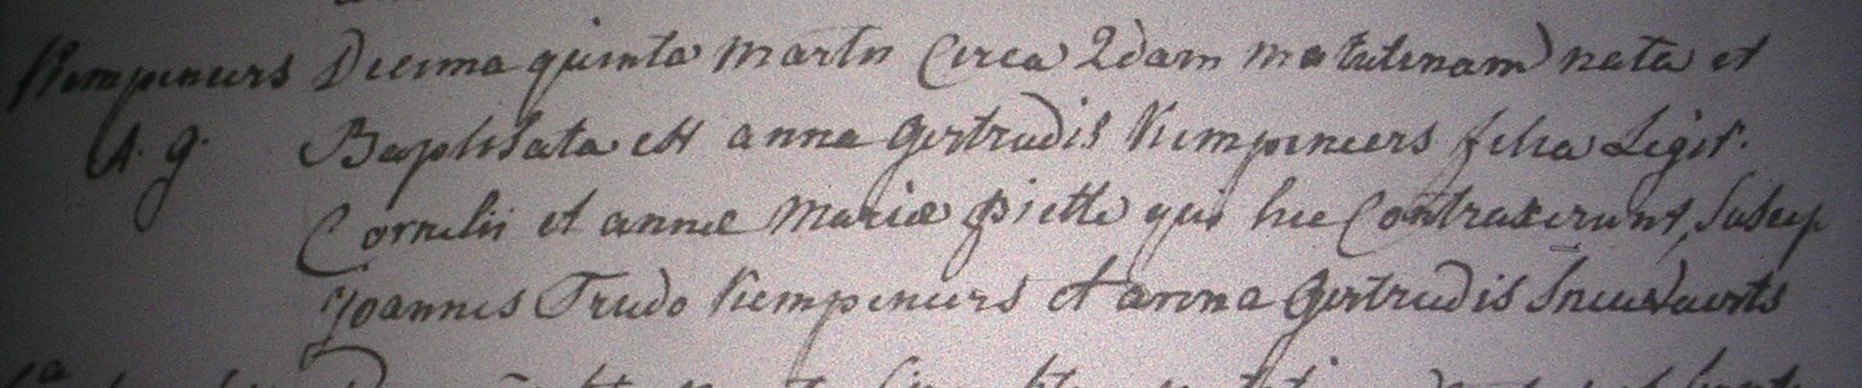 Kempeneers Decima quinta Martii Circa 2dam matutinam nata et
A. G. Baptisata est anna Gertrudis Kempeneers filia Legit.
Cornelii et annæ Mariæ Piette qui hic Contraxerunt, Suscep
Joannes Trudo Kempeneers et anna Gertrudis